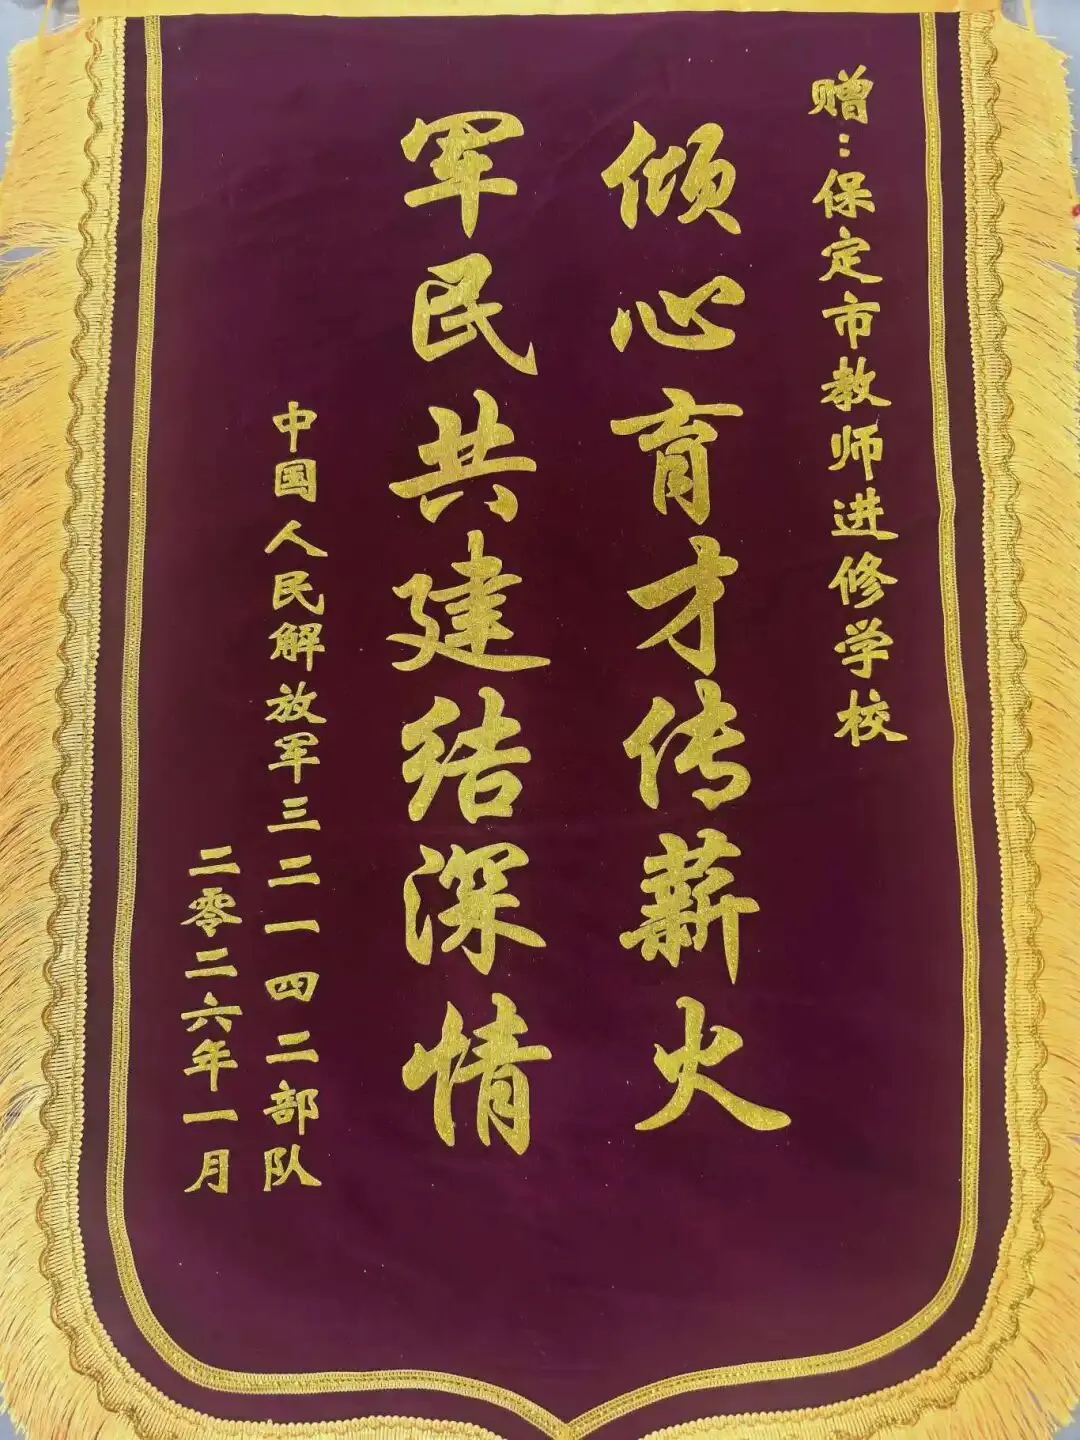 赠：保定市教师进修学校
倾心育才传薪火
军民共建结深情
中国人民解放军三二一四二部队
二零二六年一月